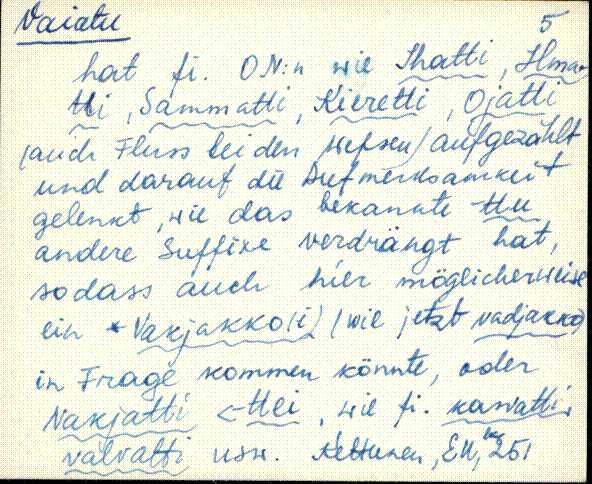 Vaiatu 5
hat fi. ON:n wie Ihatti, Ilma-
tti, Sammatti, Kieretti, Ojatti
(auch Fluss bei den Wepsen) aufgezählt
und darauf die Aufmerksamkeit
gelenkt, wie das bekannte ttu
andere Suffixe verdrängt hat,
sodass auch hier möglicherweise
ein *Vakjakko(i) (wie jetzt vadjakko)
in Frage kommen könnte, oder
Vakjatti <-ttei, wie fi.
valvatti usw. Kettunen, EN, 251